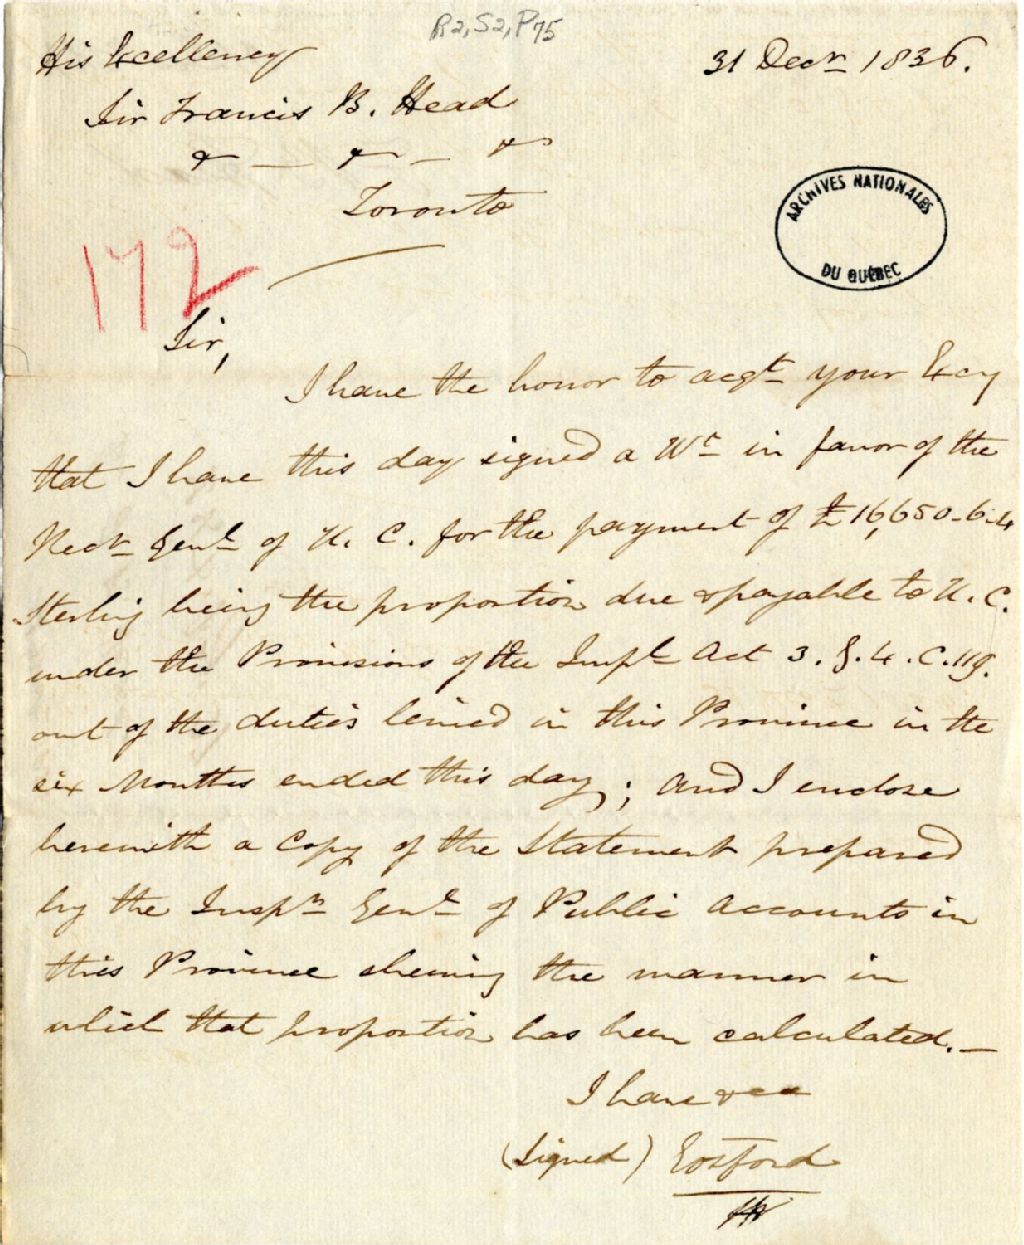 R2, S2, P75
His Excellency
31 Decr 1836.
Sir Francis B. Head
& — & — &
Toronto
ARCHIVES NATIONALES
DU QUÉBEC
172
Sir,
I have the honor to acqt your Excy
that I have this day signed a Wt in favor of the
Recr Genl of U. C. for the payment of £16,650-6-4
Sterling being the proportion due & payable to U. C.
under the Provisions of the Impl Act 3. G. 4. C. 119.
out of the duties levied in this Province in the
six Months ended this day; and I enclose
herewith a Copy of the Statement prepared
by the Inspr Genl of Public Accounts in
this Province shewing the manner in
which that proportion has been calculated. —
I have &cc
(Signed) Gosford